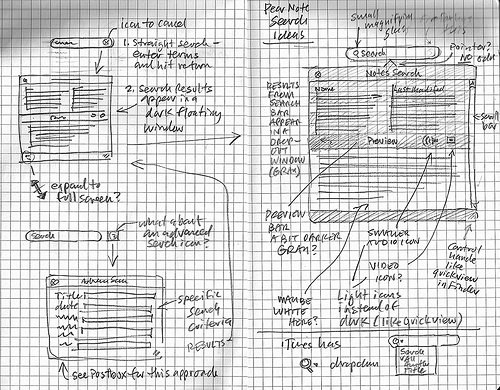 icon to cancel
1. Straight search -
enter terms
and hit return
2. Search Results
appear in a
dark floating
window
expand to
full screen?
Search
what about
an advanced
search icon?
Advanced Search
Title
date
specific
search
criteria
RESULTS
see Postbox for this approach
Pear Note
Search
Ideas
Small
magnifying
glass
Search
pointer?
No
Notes Search
Name
Last Modified
RESULTS
FROM
SEARCH
BAR
APPEAR
IN A
DROP-
OUT
WINDOW
(GRAY)
scroll
bar
Preview
PREVIEW
BAR
A BIT DARKER
GRAY?
SMALLER
AUDIO ICON
VIDEO
ICON?
Control
handle
like
quickview
in Finder
MAYBE
WHITE
HERE?
Light icons
instead of
dark (like quickview)
iTunes has
dropdown
Search
All
Title